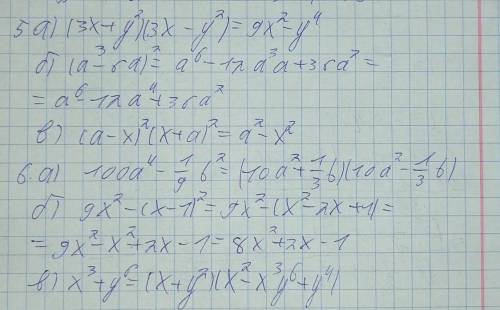 5. а) (3x+y²)(3x-y²)=9x²-y⁴
б) (a³-6a)²=a⁶-12a³a+36a²=
=a⁶-12a⁴+36a²
в) (a-x)²(x+a)²=a²-x²
6. а) 100a⁴-1/9b²=(10a²+1/3b)(10a²-1/3b)
б) 9x²-(x-1)²=9x²-(x²-2x+1)=
=9x²-x²+2x-1=8x²+2x-1
в) x³+y⁶=(x+y²)(x²-x³y⁶+y⁴)